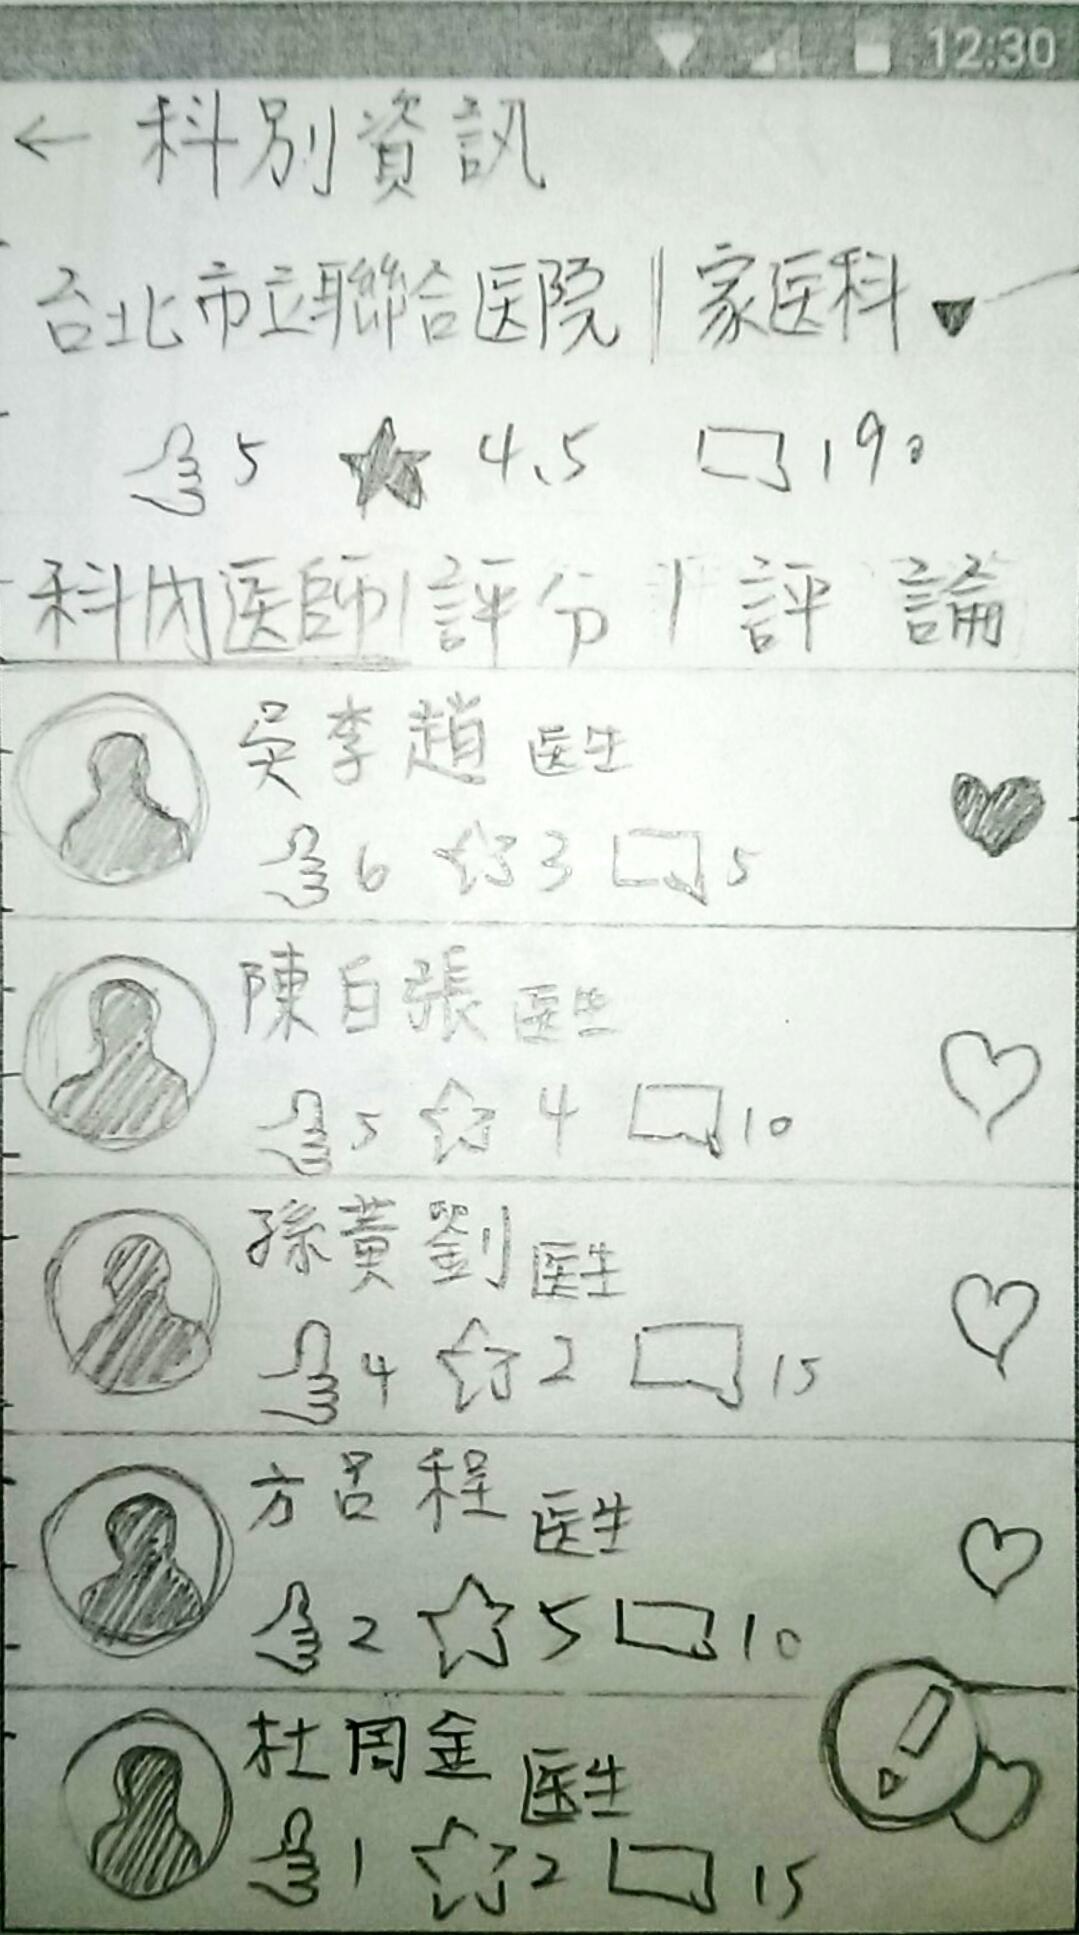 12:30
← 科別資訊
台北市立聯合医院 | 家医科
5 4.5 190
科内医師 | 評分 | 評論
吳李趙 医生
6 3 5
陳白張 医生
5 4 10
孫黃劉 医生
4 2 15
方呂程 医生
2 5 10
杜周金 医生
1 2 15